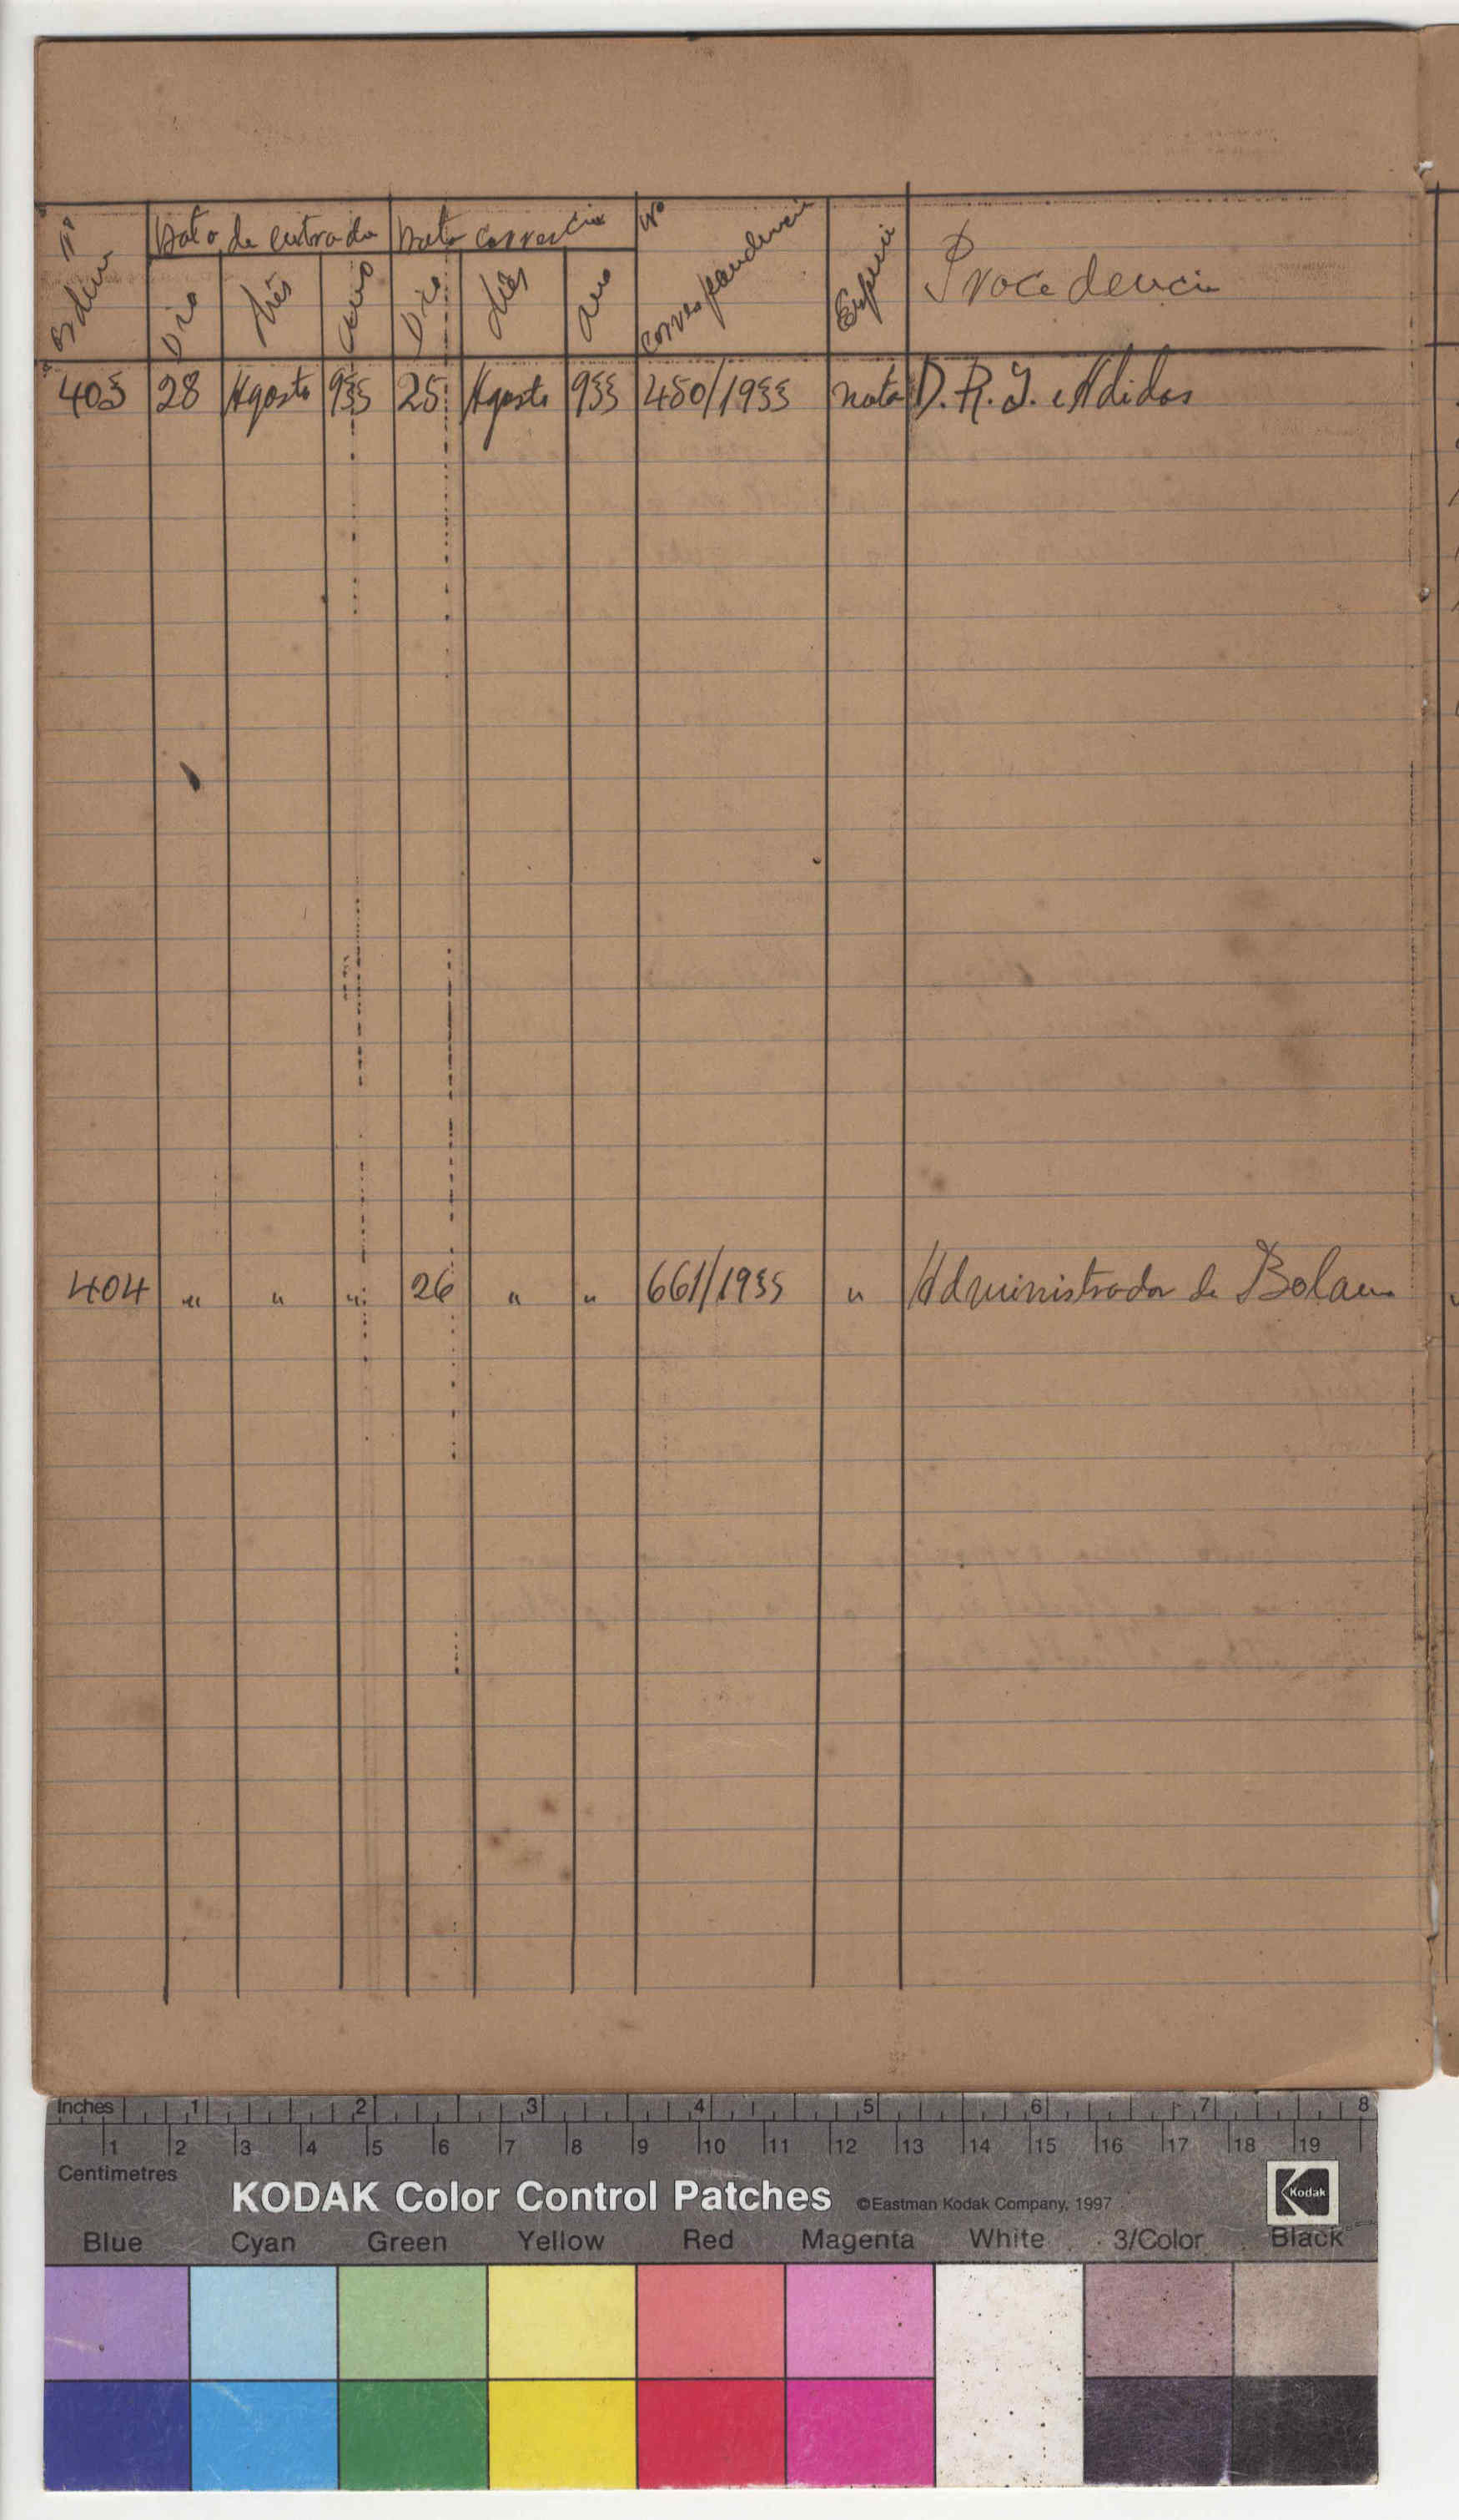 Nº ordem Data de entrada Data correcia Nº correspondencia Especie Procedencia
Dia Mês Ano Dia Mês Ano
403 28 Agosto 933 25 Agosto 933 480/1933 nota D. R. I. Adidos
404 " " " 26 " " 661/1933 " Administrador de Bolama
Inches 1 2 3 4 5 6 7 8
1 2 3 4 5 6 7 8 9 10 11 12 13 14 15 16 17 18 19
Centimetres
KODAK Color Control Patches ©Eastman Kodak Company, 1997 Kodak
Blue Cyan Green Yellow Red Magenta White 3/Color Black